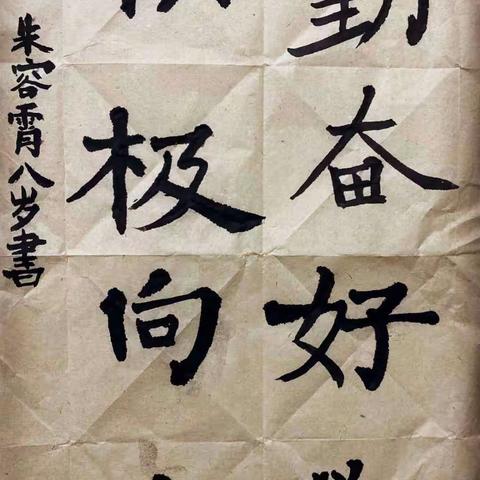 勤奋好
极向
朱容霄八岁書